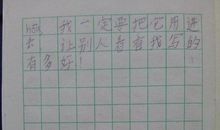 我一定要把它用进
去，让别人看看我写的
有多好！